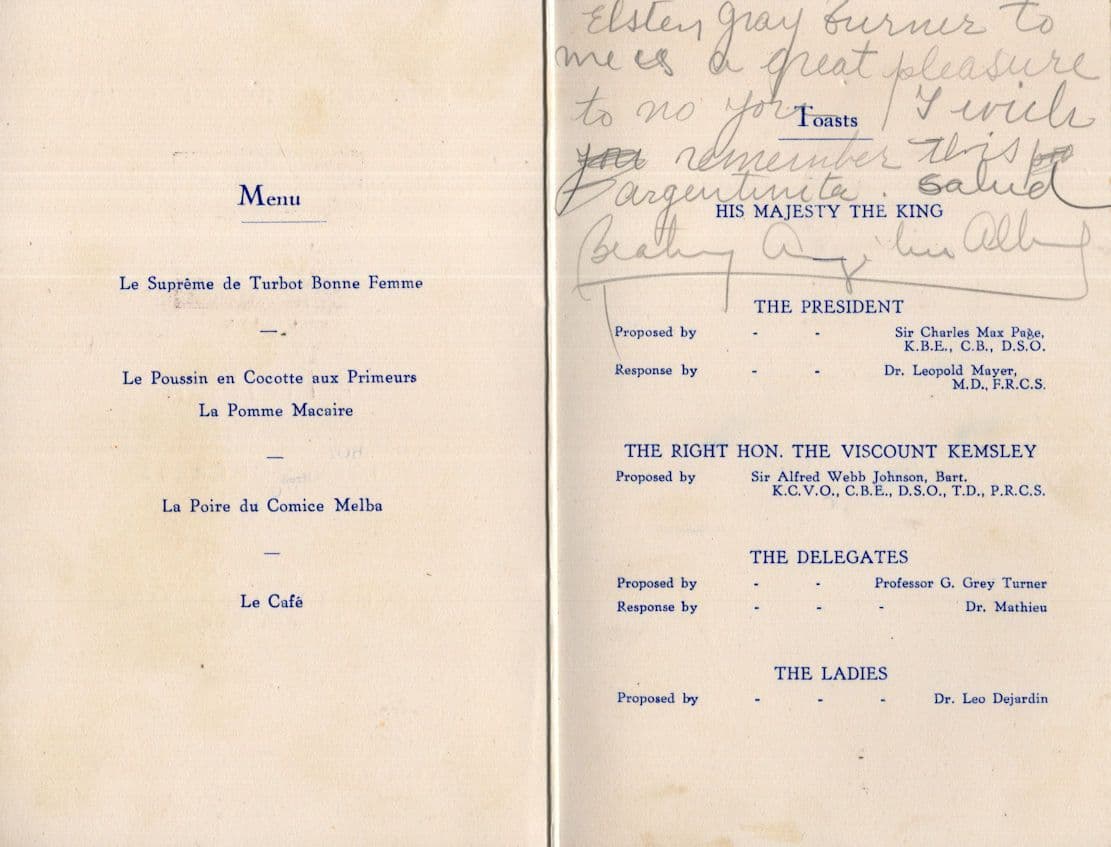 Menu
Le Suprême de Turbot Bonne Femme
—
Le Poussin en Cocotte aux Primeurs
La Pomme Macaire
—
La Poire du Comice Melba
—
Le Café
Elsten gray Burner to
me is a great pleasure
to no you / I wich
remember this
argentinita. Salud
Toasts
HIS MAJESTY THE KING
THE PRESIDENT
Proposed by - - Sir Charles Max Page,
K.B.E., C.B., D.S.O.
Response by - - Dr. Leopold Mayer,
M.D., F.R.C.S.
THE RIGHT HON. THE VISCOUNT KEMSLEY
Proposed by Sir Alfred Webb Johnson, Bart.
K.C.V.O., C.B.E., D.S.O., T.D., P.R.C.S.
THE DELEGATES
Proposed by - - Professor G. Grey Turner
Response by - - - Dr. Mathieu
THE LADIES
Proposed by - - - Dr. Leo Dejardin